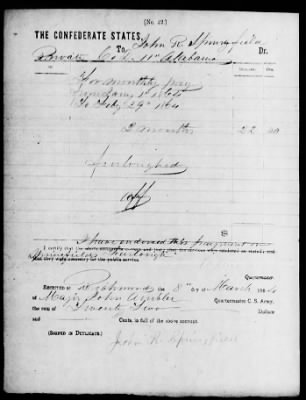 [No. 22.]
THE CONFEDERATE STATES,
To John R Springfield Dr.
Private Co 11th Alabama
For monthly pay
from Jany 1st 1864
to Feby 29th 1864
2 months 22 00
furloughed
I have endorsed this payment on
Springfields furlough
I certify that the above
and that they were necessary for the public service.
Quartermaster
RECEIVED at Richmond the 8th of March 1864
of Major John Ambler Quartermaster C. S. Army,
the sum of Twenty Two Dollars
and Cents, in full of the above account.
(SIGNED IN DUPLICATE.)
John R. Springfield